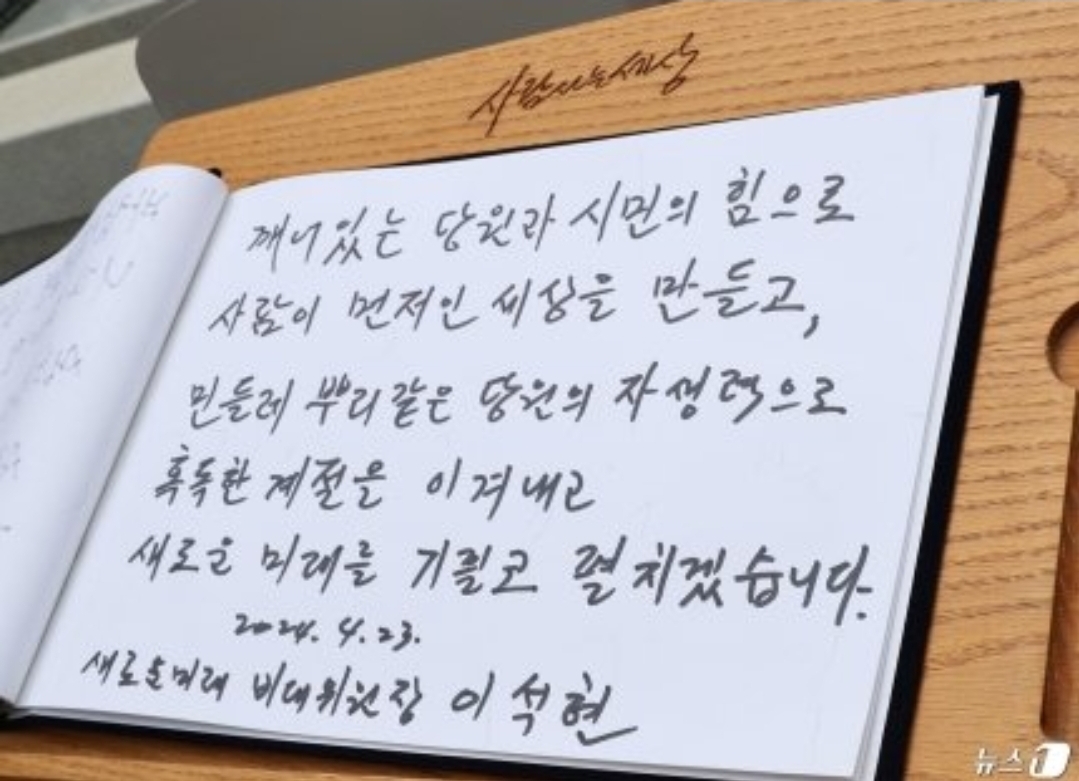 사람사는세상
깨어있는 당원과 시민의 힘으로
사람이 먼저인 세상을 만들고,
민들레 뿌리같은 당원의 자생력으로
혹독한 계절을 이겨내고
새로운 미래를 기필코 펼치겠습니다.
2024. 4. 23.
새로운미래 비대위원장 이석현
뉴스1